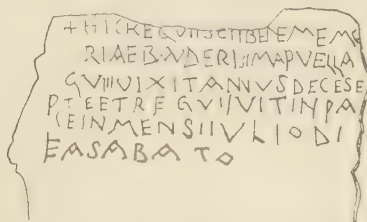 + HICREQVIISCITBENEMEME
RIAEBANDERISIMAPVELLA
QVIIIVIXITANNVSDECESE
PTEETREQVIIVITINPA
CEINMENSIIVLIODI
EASABATO